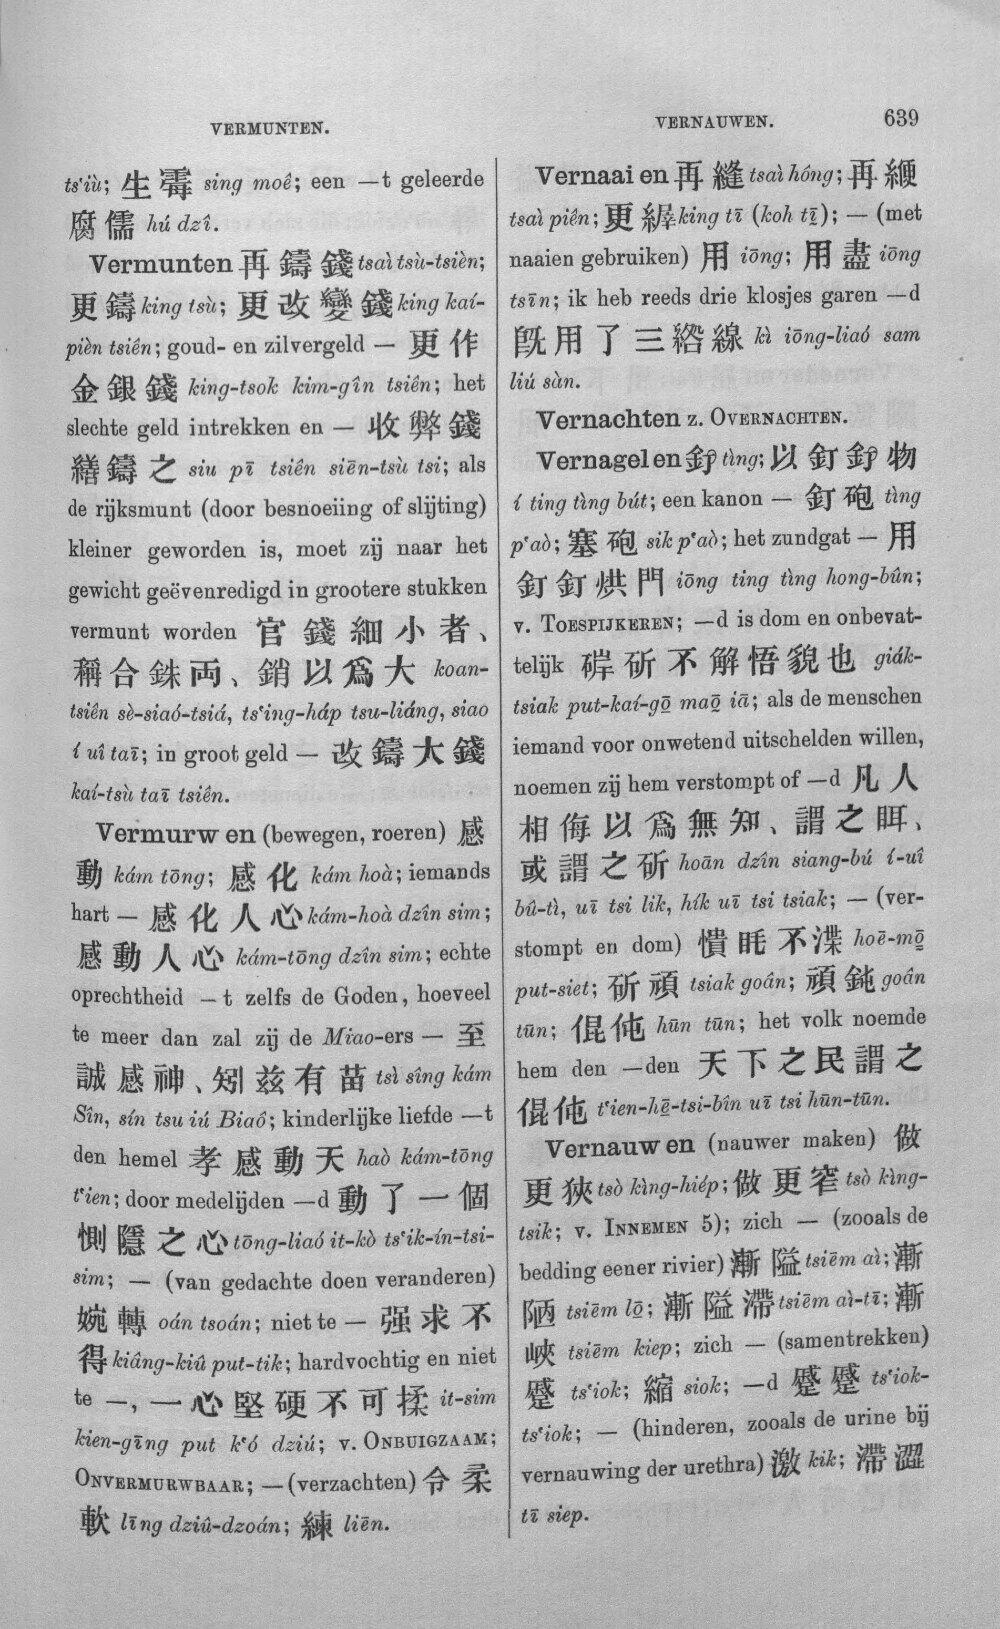 VERMUNTEN.
VERNAUWEN. 639
tsʻiù; 生霉 sing moê; een —t geleerde
腐儒 hú dzî.
Vermunten 再鑄錢 tsaì tsù-tsièn;
更鑄 king tsù; 更改變錢 king kaí-
pièn tsiên; goud- en zilvergeld — 更作
金銀錢 king-tsok kim-gîn tsiên; het
slechte geld intrekken en — 收弊錢
繕鑄之 siu pī tsiên siēn-tsù tsi; als
de rijksmunt (door besnoeiing of slijting)
kleiner geworden is, moet zij naar het
gewicht geëvenredigd in grootere stukken
vermunt worden 官錢細小者、
稱合銖両、銷以爲大 koan-
tsiên sè-siaó-tsiá, tsʻing-háp tsu-liáng, siao
í uî taī; in groot geld — 改鑄大錢
kaí-tsù taī tsiên.
Vermurwen (bewegen, roeren) 感
動 kám tōng; 感化 kám hoà; iemands
hart — 感化人心 kám-hoà dzîn sim;
感動人心 kám-tōng dzîn sim; echte
oprechtheid —t zelfs de Goden, hoeveel
te meer dan zal zij de Miao-ers — 至
誠感神、矧茲有苗 tsì sîng kám
Sîn, sín tsu iú Biaô; kinderlijke liefde —t
den hemel 孝感動天 haò kám-tōng
tʻien; door medelijden —d 動了一個
惻隱之心 tōng-liaó it-kò tsʻik-ín-tsi-
sim; — (van gedachte doen veranderen)
婉轉 oán tsoán; niet te — 强求不
得 kiâng-kiû put-tik; hardvochtig en niet
te —, 一心堅硬不可揉 it-sim
kien-gīng put kʻó dziú; v. ONBUIGZAAM;
ONVERMURWBAAR; — (verzachten) 令柔
軟 līng dziû-dzoán; 練 liēn.
Vernaaien 再縫 tsaì hông; 再緶
tsaì piên; 更繹 king tī (koh tī); — (met
naaien gebruiken) 用 iōng; 用盡 iōng
tsīn; ik heb reeds drie klosjes garen —d
旣用了三綹線 kì iōng-liaó sam
liú sàn.
Vernachten z. OVERNACHTEN.
Vernagelen 釘 tìng; 以釘釘物
í ting tìng bút; een kanon — 釘砲 tìng
pʻaò; 塞砲 sik pʻaò; het zundgat — 用
釘釘烘門 iōng ting tìng hong-bûn;
v. TOESPIJKEREN; —d is dom en onbevat-
telijk 硸斫不解悟貌也 giák-
tsiak put-kaí-gō maō iā; als de menschen
iemand voor onwetend uitschelden willen,
noemen zij hem verstompt of —d 凡人
相侮以爲無知、謂之眲、
或謂之斫 hoān dzîn siang-bú í-uî
bû-tì, uī tsi lik, hík uī tsi tsiak; — (ver-
stompt en dom) 憒眊不渫 hoē-mō
put-siet; 斫頑 tsiak goân; 頑鈍 goân
tūn; 倱伅 hūn tūn; het volk noemde
hem den —den 天下之民謂之
倱伅 tʻien-hē-tsi-bîn uī tsi hūn-tūn.
Vernauwen (nauwer maken) 做
更狹 tsò kìng-hiép; 做更窄 tsò kìng-
tsik; v. INNEMEN 5); zich — (zooals de
bedding eener rivier) 漸隘 tsiēm aì; 漸
陋 tsiēm lō; 漸隘滯 tsiēm aì-tī; 漸
峽 tsiēm kiep; zich — (samentrekken)
蹙 tsʻiok; 縮 siok; —d 蹙蹙 tsʻiok-
tsʻiok; — (hinderen, zooals de urine bij
vernauwing der urethra) 激 kik; 滯澀
tī siep.